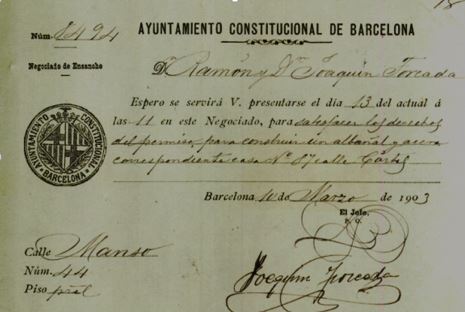 AYUNTAMIENTO CONSTITUCIONAL DE BARCELONA
Núm. 1494
Negociado de Ensanche
D. Ramón y Dn Joaquin Forcada
Espero se servirá V. presentarse el día 13 del actual á
las 11 en este Negociado, para satisfacer los derechos
del permiso para construir un albañal y acera
correspondiente casa Nº 87 calle Córtes
AYUNTAMIENTO CONSTITUCIONAL
BARCELONA
Barcelona 10 de Marzo de 1903
El Jefe,
P. O.
Calle Manso
Núm. 44
Piso pral
Joaquin Forcada